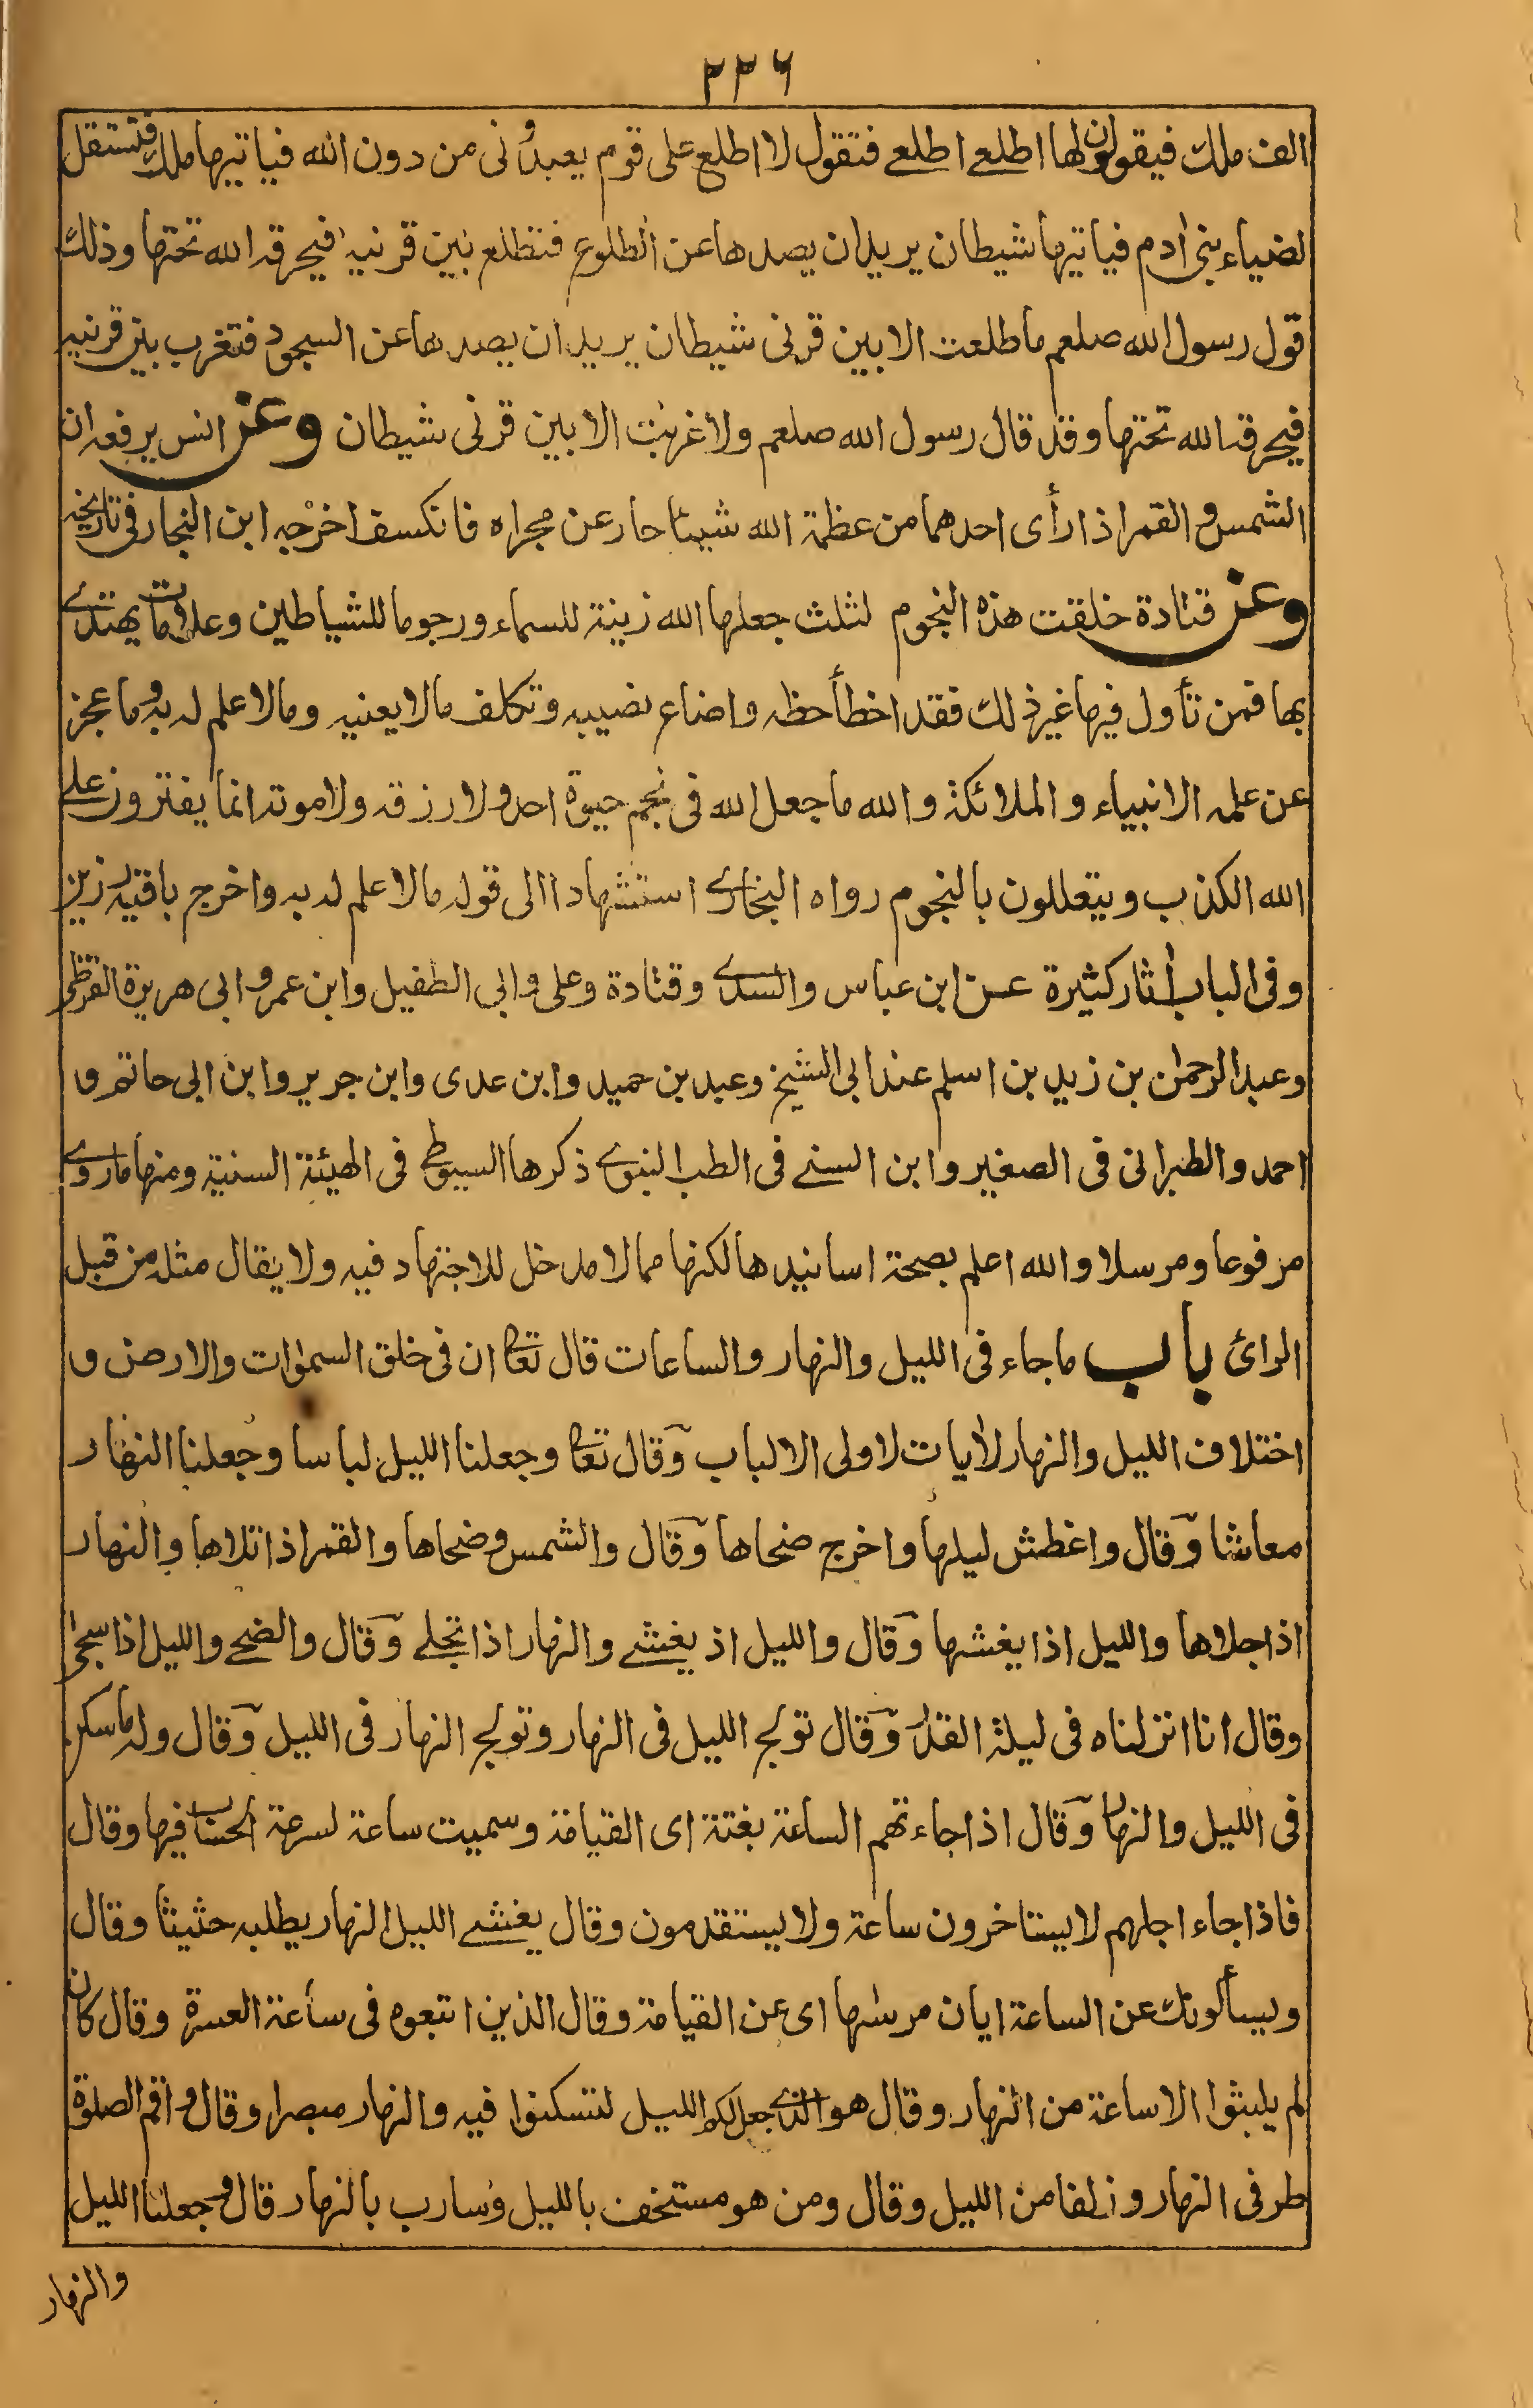 ٢٣٦
الف ملك فيقولون لها اطلعى اطلعى فتقول لا اطلع على قوم يعبدونى من دون الله فياتيها ملك فتستقل
لضياء بنى ادم فياتيها شيطان يريد ان يصدها عن الطلوع فتطلع بين قرنيه فيحرقه الله تحتها وذلك
قول رسول الله صلعم ما طلعت الا بين قرنى شيطان يريد ان يصدها عن السجود فتغرب بين قرنيه
فيحرقه الله تحتها وقد قال رسول الله صلعم ولا غربت الا بين قرنى شيطان وعن انس يرفعه ان
الشمس والقمر اذا رأى احدهما من عظمة الله شيئا حار عن مجراه فانكسف اخرجه ابن النجار فى تاريخه
وعن قتادة خلقت هذه النجوم لثلث جعلها الله زينة للسماء ورجوما للشياطين وعلامات يهتدى
بها فمن تأول فيها غير ذلك فقد اخطأ حظه واضاع نصيبه وتكلف مالا يعنيه ومالا علم له به وما عجز
عن علمه الانبياء والملائكة والله ما جعل الله فى نجم حيوة احد ولا رزقه ولا موته انما يفترون على
الله الكذب ويتعللون بالنجوم رواه البخارى استشهادا الى قوله مالا علم له به واخرج باقيه رزين
وفى الباب اثار كثيرة عن ابن عباس والسدى وقتادة وعلى وابى الطفيل وابن عمرو ابى هريرة القرظى
وعبد الرحمن بن زيد بن اسلم عند ابى الشيخ وعبد بن حميد وابن عدى وابن جرير وابن ابى حاتم و
احمد والطبرانى فى الصغير وابن السنى فى الطب النبوى ذكرها السيوطى فى الهيئة السنية ومنها ماروى
مرفوعا ومرسلا والله اعلم بصحة اسانيدها لكنها مما لا مدخل للاجتهاد فيه ولا يقال مثله من قبل
الرائ باب ما جاء فى الليل والنهار والساعات قال تعا ان فى خلق السموات والارض و
اختلاف الليل والنهار لأيات لاولى الالباب وقال تعا وجعلنا الليل لباسا وجعلنا النهار
معاشا وقال واغطش ليلها واخرج ضحاها وقال والشمس وضحاها والقمر اذا تلاها والنهار
اذا جلاها والليل اذا يغشها وقال والليل اذ يغشى والنهار اذا تجلى وقال والضحى والليل اذا سجى
وقال انا انزلناه فى ليلة القدر وقال تولج الليل فى النهار وتولج النهار فى الليل وقال وله ما سكن
فى الليل والنهار وقال اذا جاءتهم الساعة بغتة اى القيامة وسميت ساعة لسرعة الحساب فيها وقال
فاذا جاء اجلهم لا يستاخرون ساعة ولا يستقدمون وقال يغشى الليل النهار يطلبه حثيثا وقال
ويسألونك عن الساعة ايان مرسها اى عن القيامة وقال الذين اتبعوه فى ساعة العسرة وقال كان
لم يلبثوا الا ساعة من النهار وقال هو الذى جعل لكم الليل لتسكنوا فيه والنهار مبصرا وقال واقم الصلوة
طرفى النهار وزلفا من الليل وقال ومن هو مستخف بالليل وسارب بالنهار قال وجعلنا الليل
والنهار